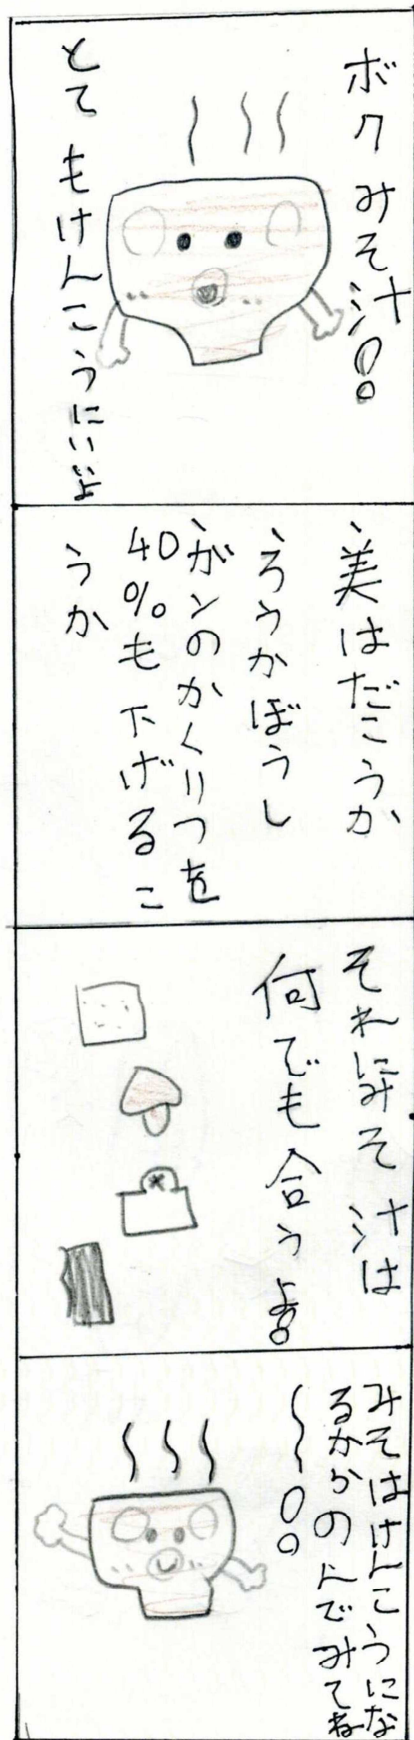 ボクみそ汁!!
とてもけんこうにいいよ
、美はだこうか
、ろうかぼうし
、ガンのかくりつを
40%も下げるこ
うか
それにみそ汁は
何でも合うよ!!
みそはけんこうにな
るからのんでみてね
〜!!